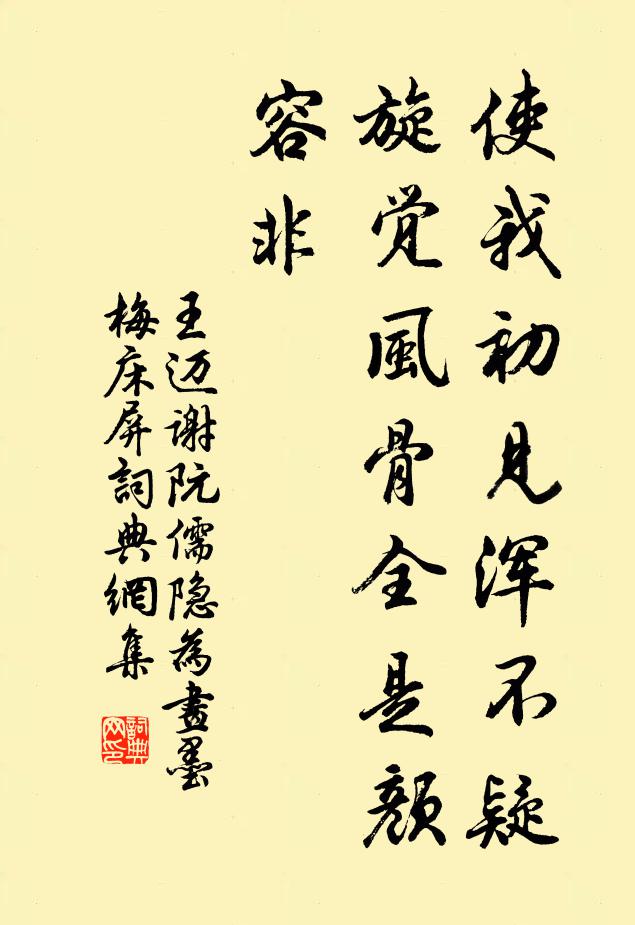 使我初见浑不疑
旋觉風骨全是颜
容非
王迈谢阮儒隐為畫墨
梅床屏詞典網集
詞典网印